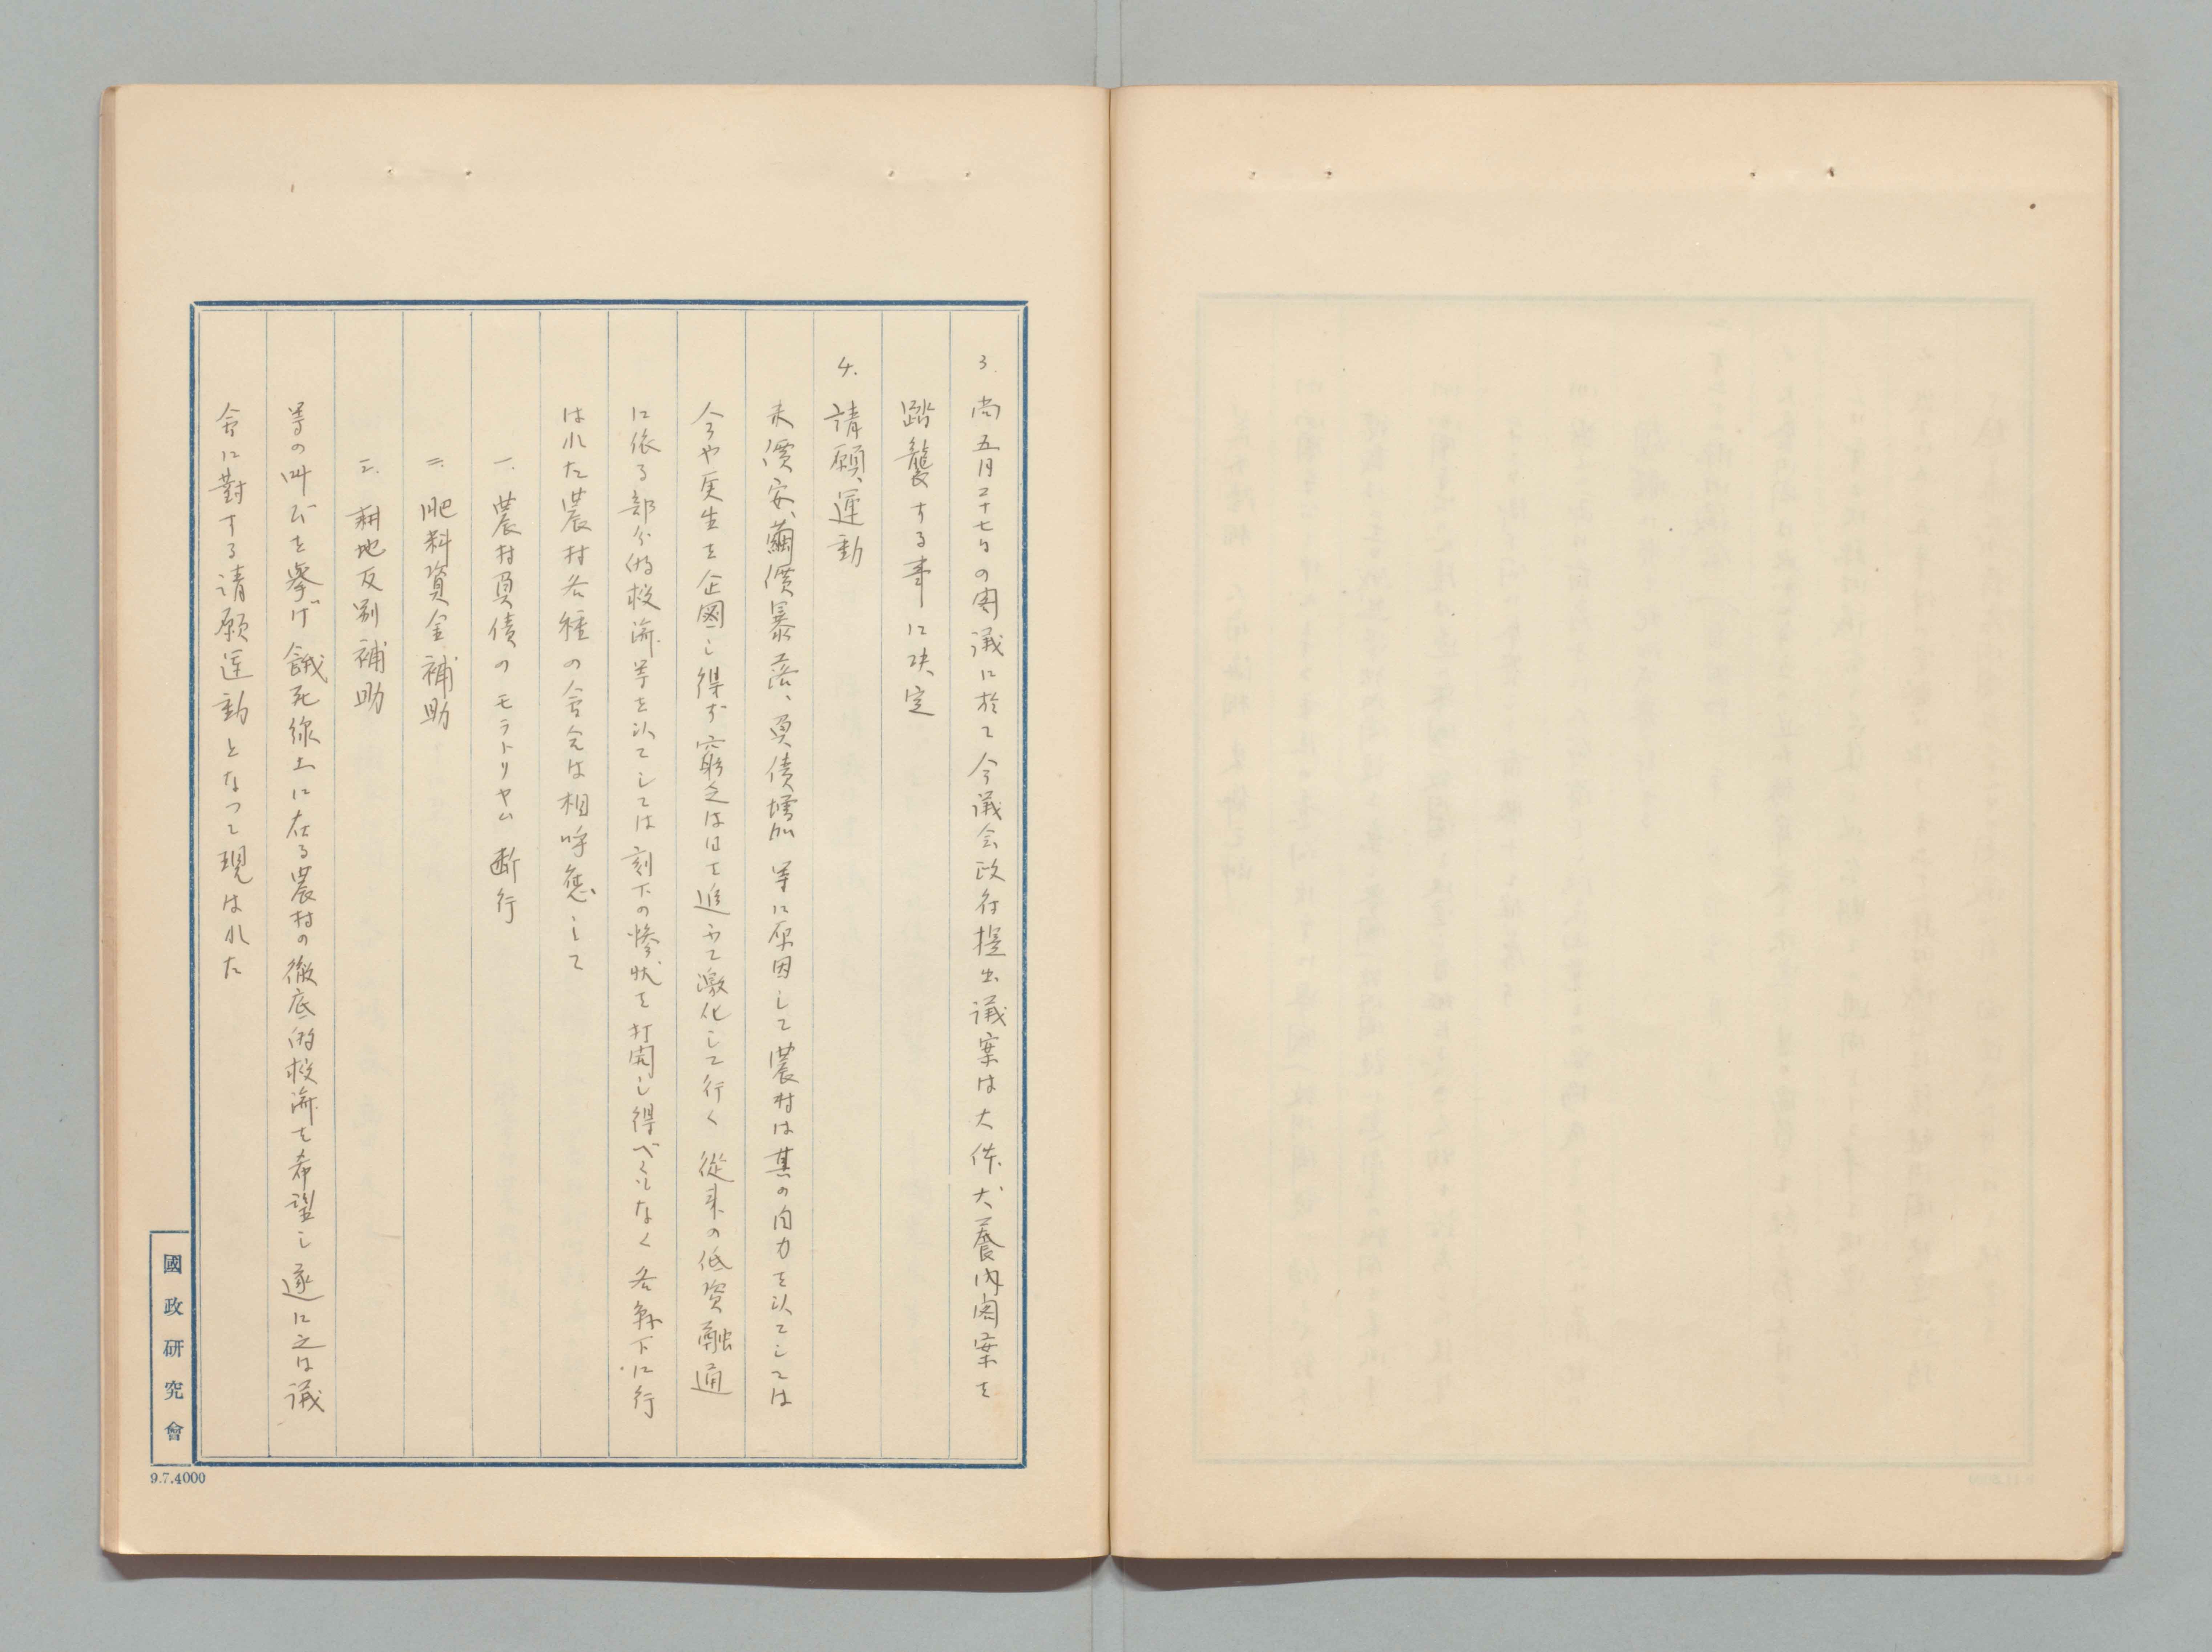 3. 尚五月二十七日の閣議に於て今議会政府提出議案は大体犬養内閣案を
踏襲する事に决定
4. 請願運動
米價安、繭價暴落、負債増加等に原因して農村は其の自力を以てしては
今や更生を企圖し得ず窮乏は日を追ふて激化して行く従来の低資融通
に依る部分的救済等を以てしては刻下の惨状を打開し得べくもなく各縣下に行
はれた農村各種の會合は相呼應して
一、農村負債のモラトリヤム断行
二、肥料資金補助
三、耕地反別補助
等の叫びを擧げ餓死線上に在る農村の徹底的救済を希望し遂に之は議
會に對する請願運動となつて現はれた
國政研究會
9.7.4000